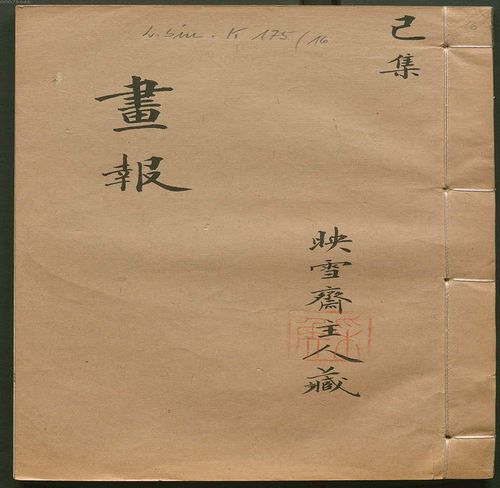 L. sin. K. 175/16
已集
畫報
映雪齋主人藏